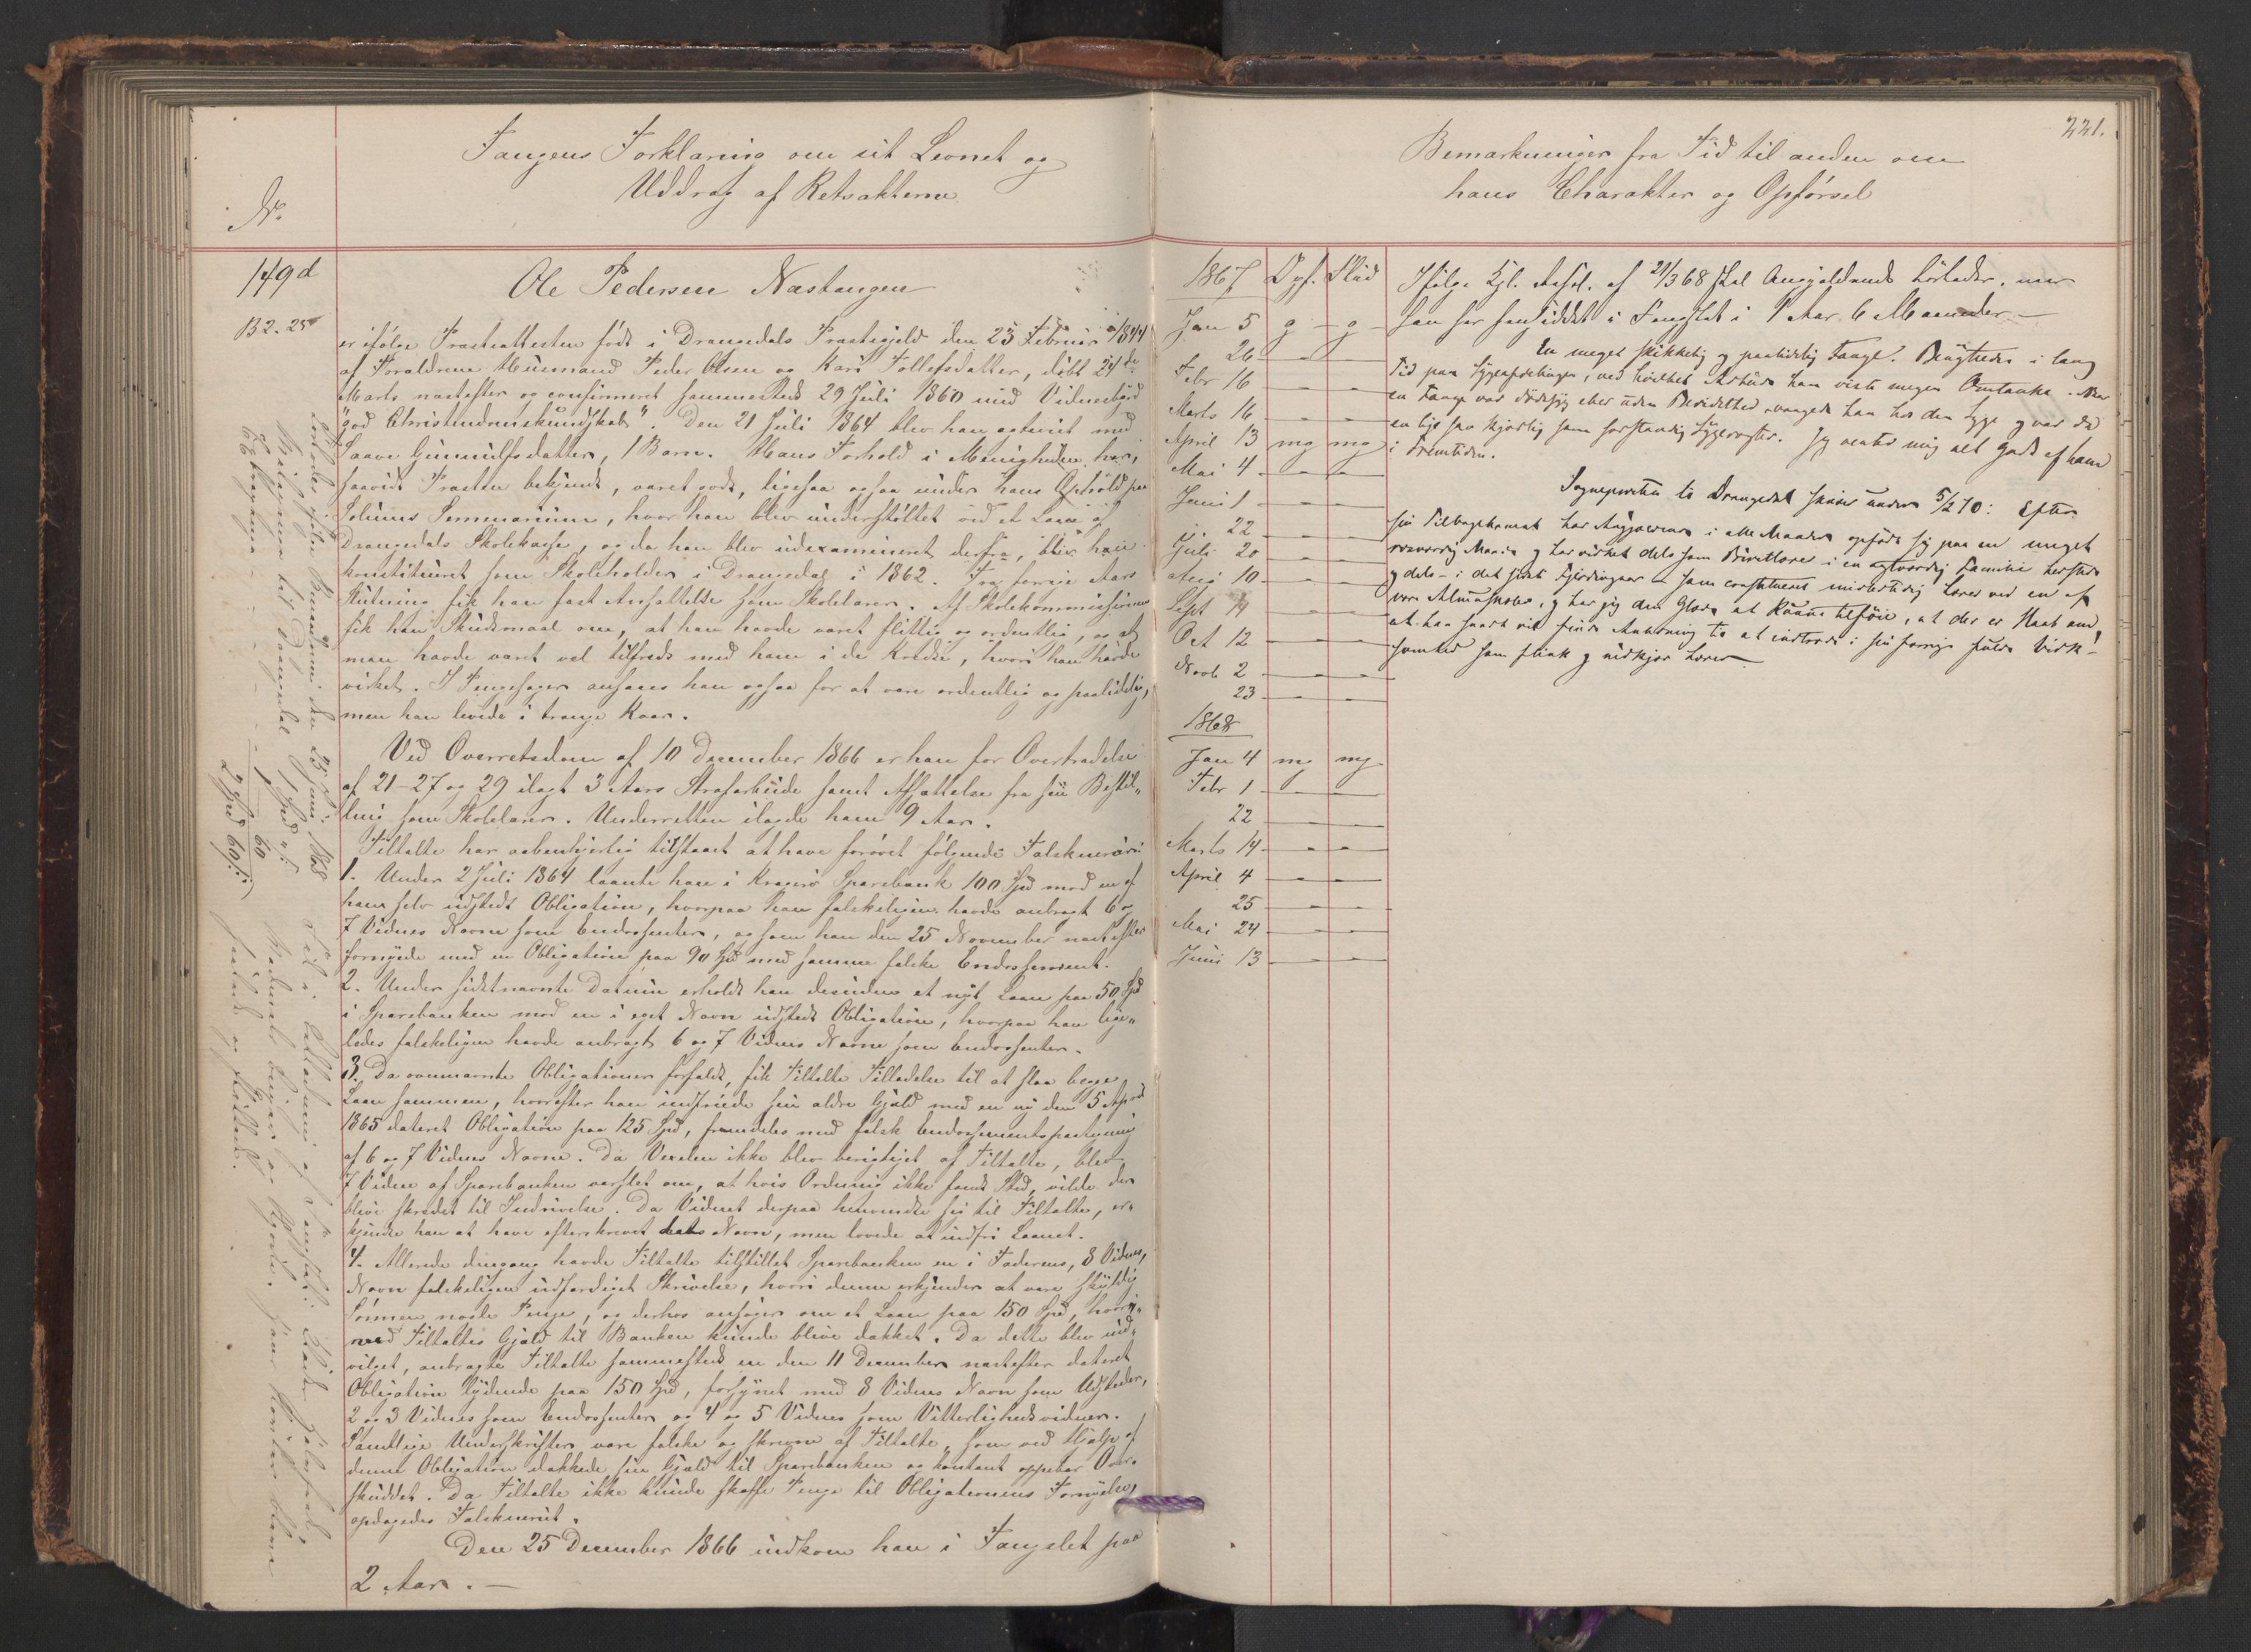 Fangens Forklaring om sit Levnet og
Uddrag af Retsakterne
No.
149d
B2. 25
Ole Pedersen Næstangen
er ifølge Præsteattesten født i Drangedals Præstegjeld den 23 Februar 1844
af Forældrene Husmand Peder Olsen og Kari Tollefsdatter, døbt 24de
Marts næstefter og confirmeret sammesteds 29 Juli 1860 med Vidnesbyrd
"god Christendomskundskab". Den 21 Juli 1864 blev han ægteviet med
Saave Gunnulfsdatter, 1 Barn. Hans Forhold i Menigheden har,
saavidt Præsten bekjendt, været godt, ligesaa ogsaa under hans Ophold paa
Seminarium, hvor han blev understøttet ved et Laan af
Drangedals Skolekasse, og da han blev udexamineret derfra, blev han
konstitueret som Skoleholder i Drangedal i 1862. Fra forrige Aars
Slutning fik han fast Ansættelse som Skolelærer. Af Skolekommissionen
fik han Skudsmaal om, at han havde været flittig og ordentlig, og at
man havde været vel tilfreds med ham i de Kredse, hvori han havde
virket. I Pengesager ansaaes han ogsaa for at være ordentlig og paalidelig,
men han levede i trange Kaar.
Ved Overretsdom af 10 December 1866 er han for Overtrædelse
af 21-27 og 29 ilagt 3 Aars Strafarbeide samt Afsættelse fra sin Bestil„
ling som Skolelærer. Underretten ilagde ham 9 Aar.
Tiltalte har aabenhjertig tilstaaet at have forøvet følgende Falsknerier:
1. Under 2 Juli 1864 laante han i Kragerø Sparebank 100 Spd mod en af
ham selv udstedt Obligation, hvorpaa han falskeligen havde anbragt 6 og
7 Vidnes Navne som Endossenter, og som han den 25 November næstefter
fornyede med en Obligation paa 90 Spd med samme falske Endossement.
2. Under sidstnævnte Datum erholdt han desuden et nyt Laan paa 50 Spd
i Sparebanken mod en i eget Navn udstedt Obligation, hvorpaa han lige„
ledes falskeligen havde anbragt 6 og 7 Vidnes Navne som Endossenter.
3. Da ovennævnte Obligationer forfaldt, fik Tiltalte Tilladelse til at slaa begge
Laan sammen, hvorefter han indfriede sin ældre Gjæld med en ny den 5 April
1865 dateret Obligation paa 125 Spd, fremdeles med falsk Endossementspaategning
af 6 og 7 Vidnes Navne. Da Vexelen ikke blev berigtiget af Tiltalte, blev
7 Vidne af Sparebanken varslet om, at hvis Ordning ikke fandt Sted, vilde der
blive skredet til Inddrivelse. Da Vidnet derpaa henvendte sig til Tiltalte, er„
kjendte han at have efterskrevet dets Navn, men lovede at indfri Laanet.
4. Allerede dengang havde Tiltalte tilstillet Sparebanken en i Faderens, 8 Vidnes,
Navn falskeligen udfærdiget Skrivelse, hvori denne erkjender at være skyldig
Sønnen nogle Penge, og derhos ansøger om et Laan paa 150 Spd, hvor„
ved Tiltaltes Gjæld til Banken kunde blive dækket. Da dette blev ind„
vilget, anbragte Tiltalte sammesteds en den 11 December næstefter dateret
Obligation lydende paa 150 Spd, forsynet med 8 Vidnes Navn som Udsteder,
2 og 3 Vidnes som Endossenter og 4 og 5 Vidnes som Vitterlighedsvidner.
Samtlige Underskrifter vare falske og skrevne af Tiltalte, som ved Hjælp af
denne Obligation dækkede sin Gjæld til Sparebanken og kontant oppebar Over„
skuddet. Da Tiltalte ikke kunde skaffe Penge til Obligationens Fornyelse,
opdagedes Falskneriet.
Den 25 December 1866 indkom han i Fængslet paa
2 Aar. —
Løslodes ifølge Benaadning den 25 Juni 1868
Reisepenge til Drangedal 1 Spd
60
2 Spd 60 s
221.
Bemærkninger fra Tid til anden om
hans Charakter og Opførsel
1867 Opf. Flid
Jan 5 g - g
26 — —
Febr 16 — —
Marts 16 — —
April 13 mg mg
Mai 4 — —
Juni 1 — —
22 — —
Juli 20 — —
Aug 10 — —
Sept 14 — —
Oct 12 — —
Novb 2 — —
23 — —
1868
Jan 4 mg mg
Febr 1 — —
22 — —
Marts 14 — —
April 4 — —
25 — —
Mai 24 — —
Juni 13 — —
Ifølge Kgl. Resol. af 21/3 68 skal Angjældende løslades, naar
han har hensiddet i Fængslet i 1 Aar 6 Maaneder. —
En meget skikkelig og paalidelig Fange. Benyttedes i lang
Tid paa Sygeafdelingen, ved hvilket Arbeide han viste megen Omtanke. Naar
en Fange var dødssyg eller uden Bevidsthed, vaagede han hos den Syge og var da
en lige saa kjærlig som forstandig Sygevogter. Jeg venter mig alt Godt af ham
i Fremtiden.
Sognepresten til Drangedal skriver under 5/2 70: Efter
sin Tilbagekomst har Angjældende i alle Maader opført sig paa en meget
rosværdig Maade og har virket dels som Privatlærer i en agtværdig Familie hersteds
og dels - i det sidste Fjerdingaar - som constitueret midlertidig Lærer ved en af
vore Almueskoler, og har jeg den Glæde at kunne tilføie, at der er Haab om,
at han snart vil finde Anledning til at indtræde i sin forrige fulde Virk-
somhed som flink og nidkjær Lærer